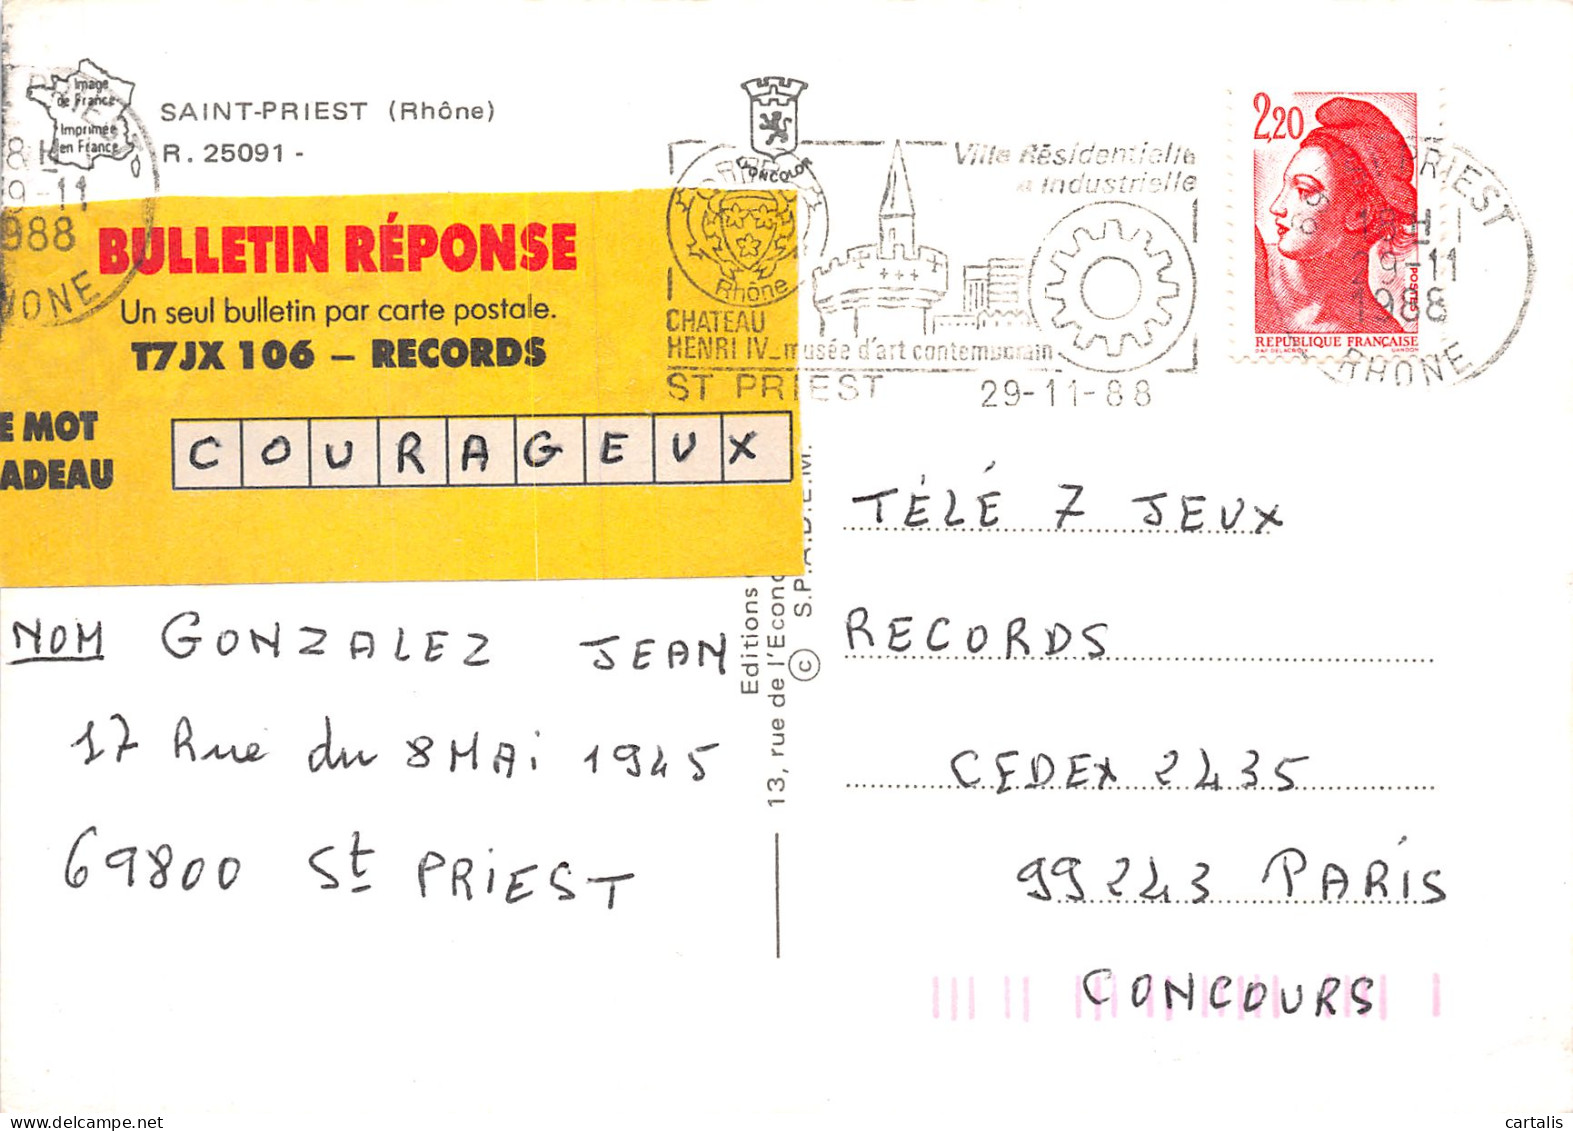 Image
de France
Imprimée
en France
SAINT-PRIEST (Rhône)
R. 25091 -
COMBIER
CIM
8H
9-11
988
HONE
BULLETIN RÉPONSE
Un seul bulletin par carte postale.
T7JX 106 – RECORDS
E MOT
ADEAU
COURAGEUX
NOM GONZALEZ JEAN
17 Rue du 8 MAi 1945
69800 St PRiEST
Editions
13, rue de l'Econo
© S.P.A.D.E.M.
Ville Résidentielle
& Industrielle
Rhône
CHATEAU
HENRI IV_musée d'art contemporain
ST PRIEST 29-11-88
2,20
POSTES
REPUBLIQUE FRANÇAISE
D'AP. DELACROIX GANDON
PRIEST
18H
29-11
1988
RHONE
TÉLÉ 7 JEUX
RECORDS
CEDEX 2435
99243 PARIS
CONCOURS
cartalis